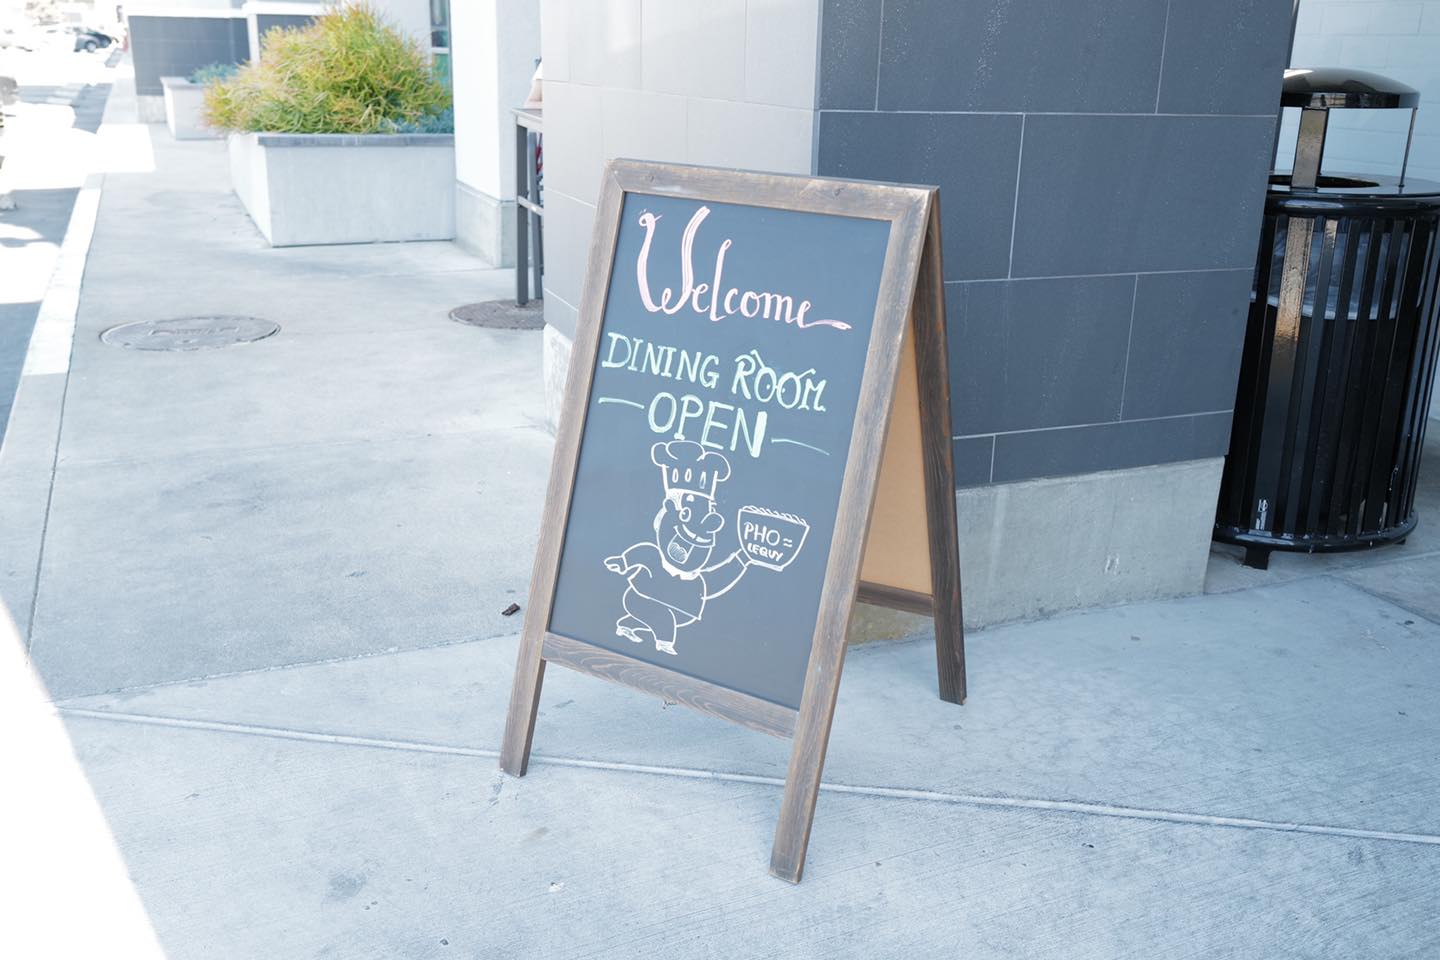 Welcome
DINING ROOM
— OPEN —
PHO =
LEQUY